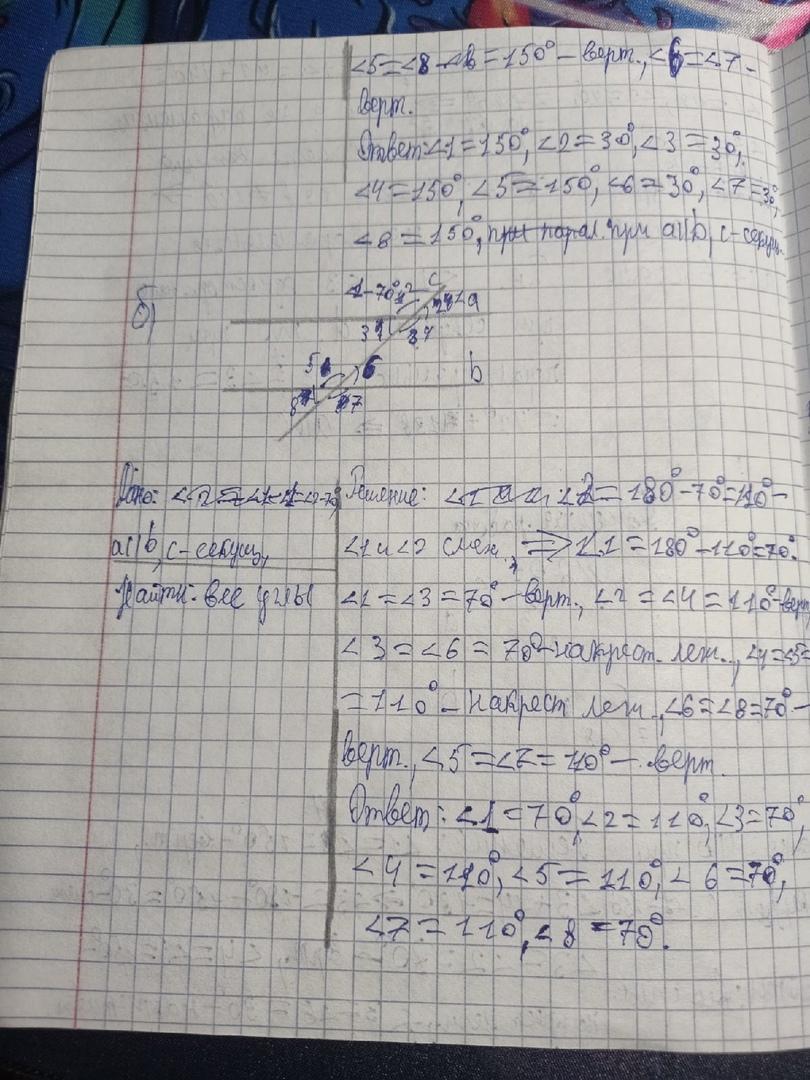 ∠5=∠8 = 150° – верт., ∠6=∠7 –
верт.
Ответ: ∠1=150°, ∠2=30°, ∠3=30°,
∠4=150°, ∠5=150°, ∠6=30°, ∠7=30°,
∠8=150°, при a||b, c-секущ.
б)
c
a
b
Дано:
a||b, c-секущ,
Найти: все углы
Решение: ∠2=180°-70°=110° –
∠1 и ∠2 смеж., ⇒ ∠1=180°-110°=70°.
∠1=∠3=70° – верт., ∠2=∠4=110° – верт
∠3=∠6=70° – накрест. леж., ∠4=∠5=
=110° – накрест леж., ∠6=∠8=70° –
верт., ∠5=∠7=110° – верт.
Ответ: ∠1=70°, ∠2=110°, ∠3=70°,
∠4=110°, ∠5=110°, ∠6=70°,
∠7=110°, ∠8=70°.